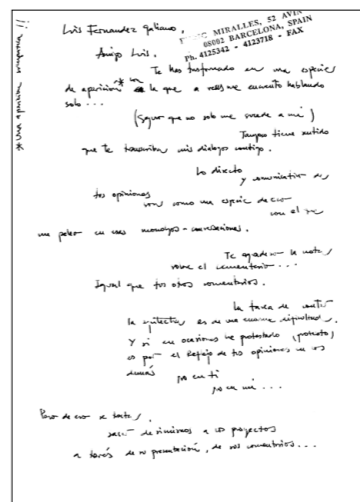 Luis Fernandez Galiano,
ENRIC MIRALLES, 52 AVIN
08002 BARCELONA, SPAIN
Ph. 4125342 - 4123718 - FAX
Amigo Luis.
Te has trasformado en una especie
de aparición* con la que a veces me encuentro hablando
solo...
(Seguro que no solo me sucede a mi)
Tampoco tiene sentido
que te transcriba mis dialogos contigo.
Lo directo
y comunicativo de
tus opiniones
son como una especie de eco
con el que
me peleo en unos monologos-conversaciones.
Te agradecer la nota
sobre el cementerio...
Igual que tus otros comentarios.
la tarea de contar
la arquitectura es de una enorme dificultad.
Y si en ocasiones he protestado (protesto)
es por el Reflejo de tus opiniones en los
demás
no en ti
no en mi...
Pero de eso se trata,
hacer de a los proyectos
a través de su presentación, de sus comentarios...
* una aparicion !!